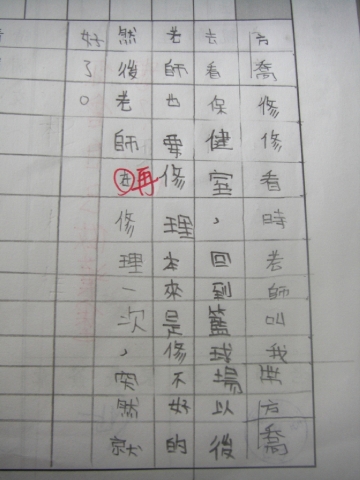 方喬修修看時老師叫我帶方喬
去看保健室，回到籃球場以後
老師也要修理本來是修不好的
然後老師在再修理一次，突然就
好了。